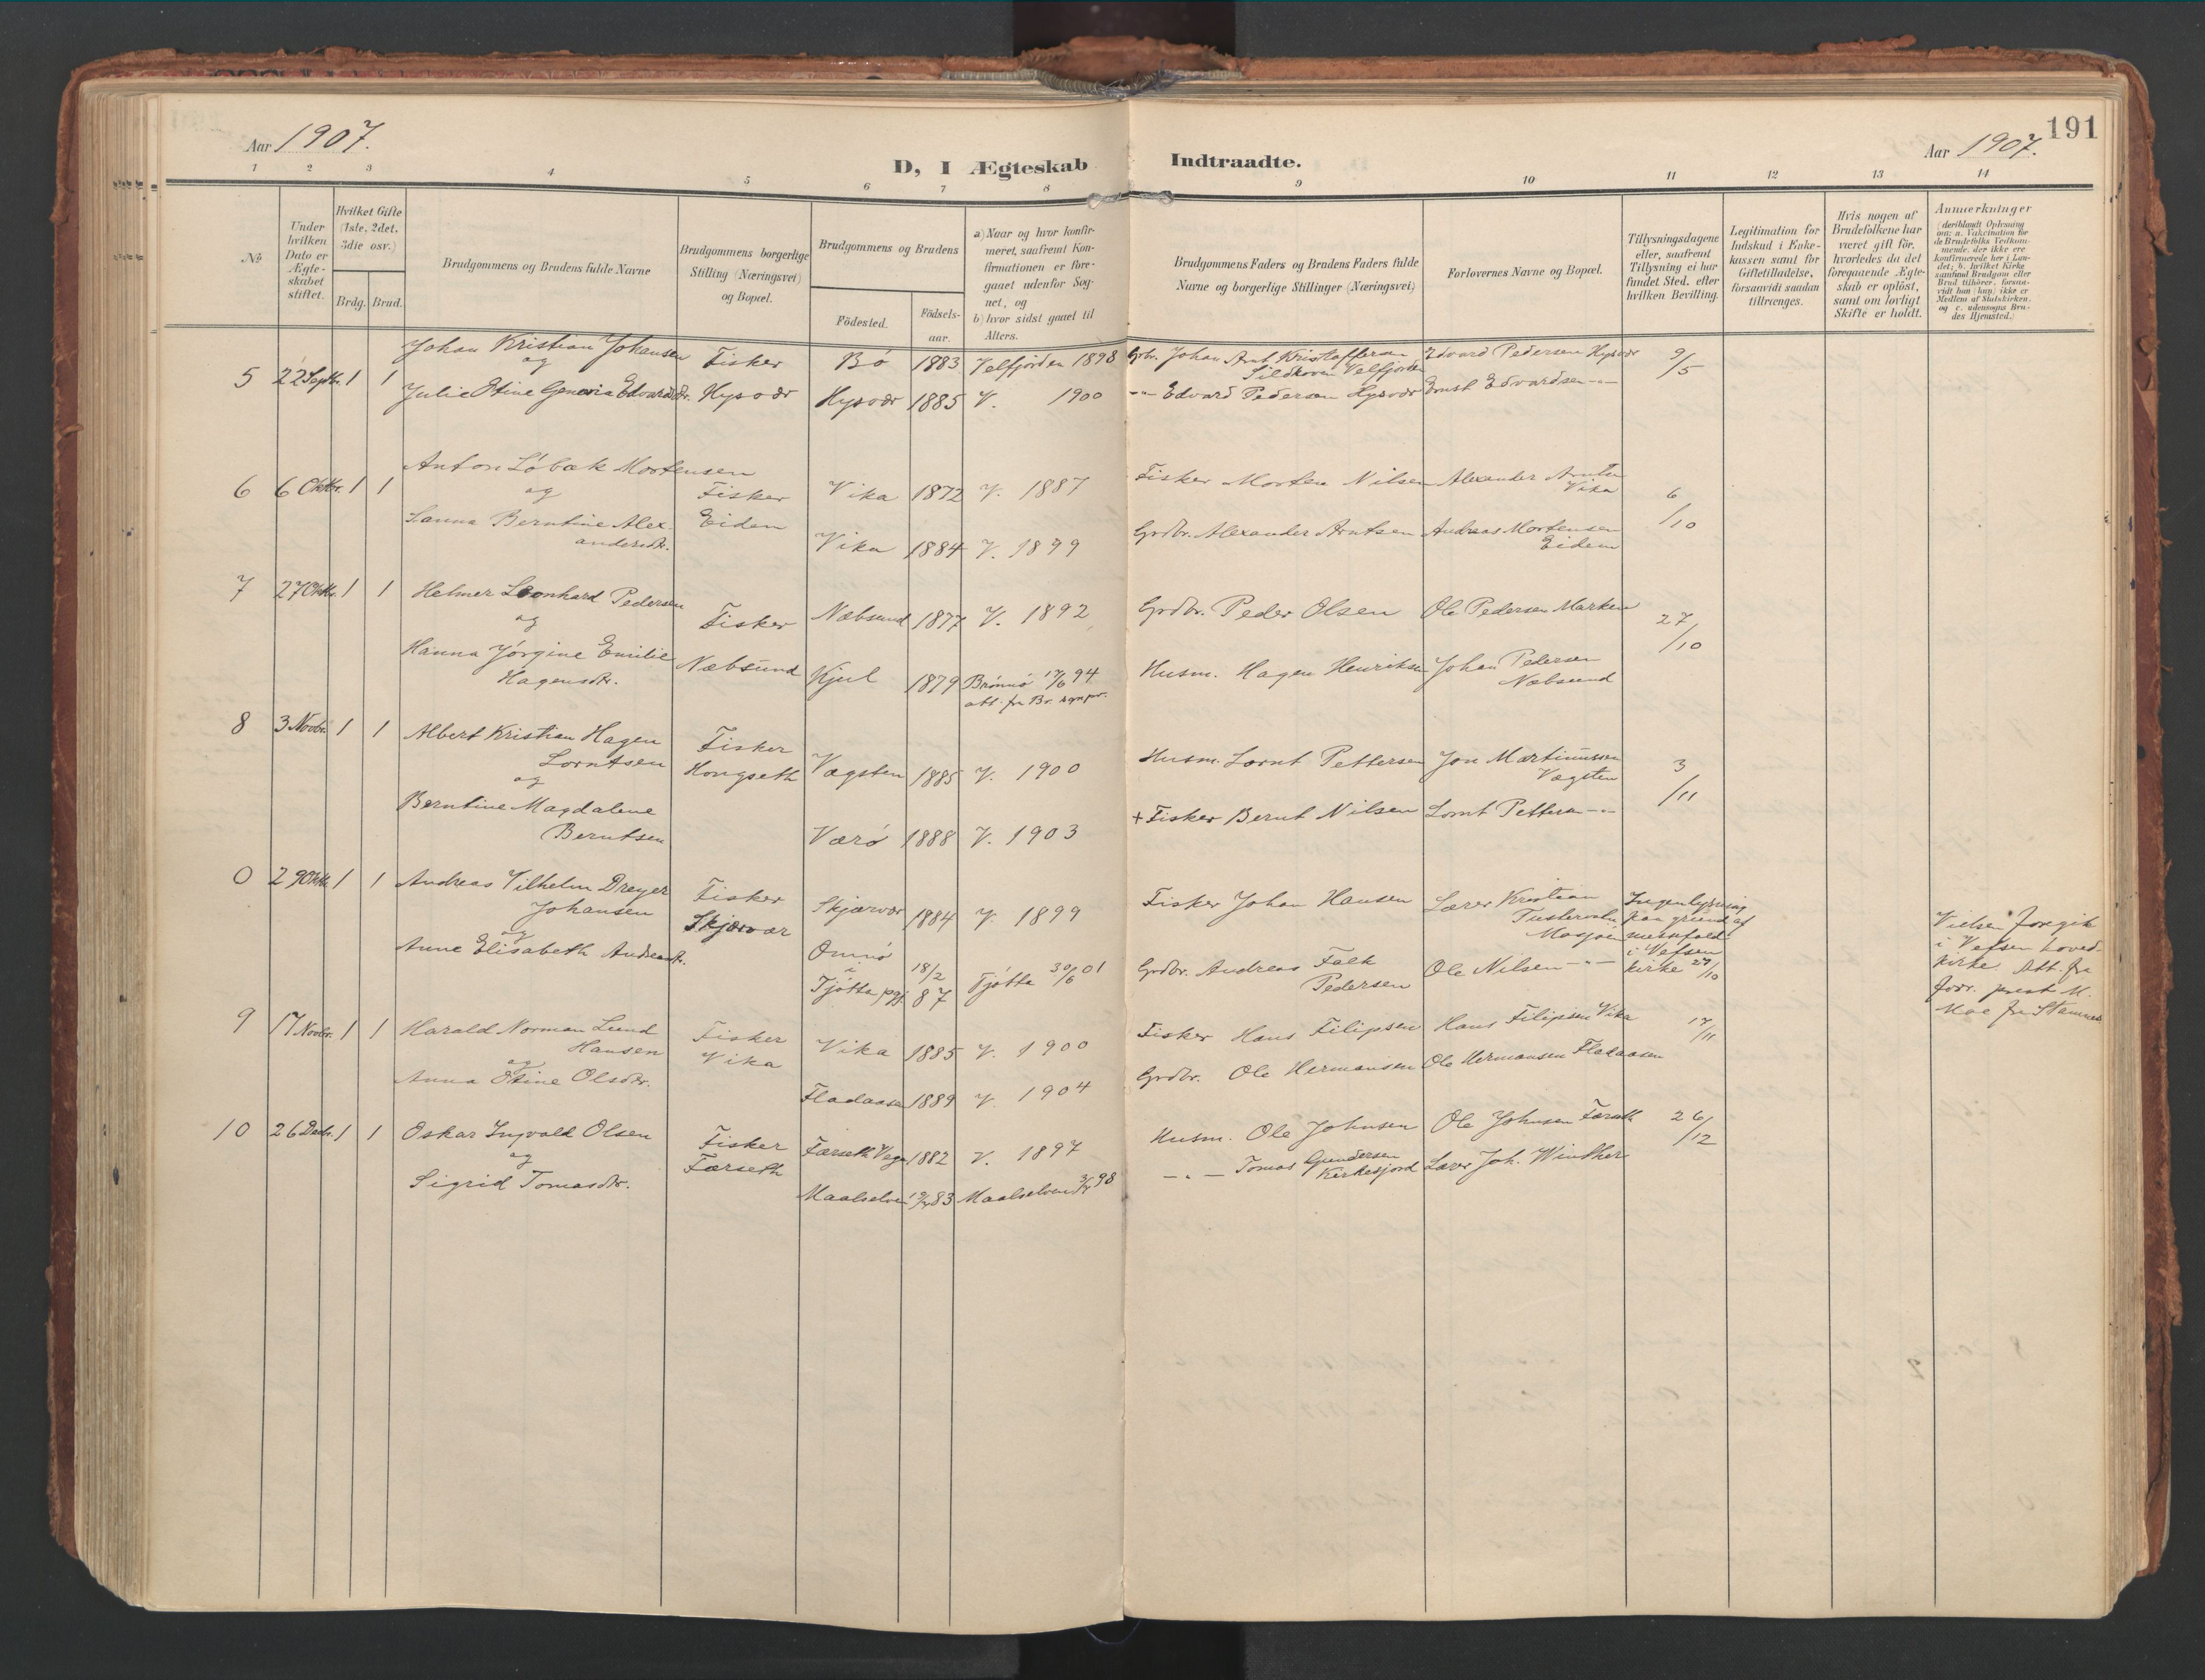 191
Aar 1907.
D, I Ægteskab Indtraadte.
Aar 1907.
1 2 3 4 5 6 7 8 9 10 11 12 13 14
No
Under hvilken Dato er Ægte-skabet stiftet.
Hvilket Gifte (1ste, 2det, 3die osv.)
Brdg. Brud.
Brudgommens og Brudens fulde Navne
Brudgommens borgerlige Stilling (Næringsvei) og Bopæl.
Brudgommens og Brudens
Födested.
Födsels-aar.
a) Naar og hvor konfir-meret, saafremt Kon-firmationen er fore-gaaet udenfor Sog-net, og
b) hvor sidst gaaet til Alters.
Brudgommens Faders og Brudens Faders fulde Navne og borgerlige Stillinger (Næringsvei)
Forlovernes Navne og Bopæl.
Tillysningsdagene eller, saafremt Tillysning ei har fundet Sted, efter hvilken Bevilling.
Legitimation for Indskud i Enke-kassen samt for Giftetilladelse, forsaavidt saadan tiltrænges.
Hvis nogen af Brudefolkene har været gift för, hvorledes da det foregaaende Ægte-skab er oplöst, samt om lovligt Skifte er holdt.
Anmerkninger (deriblandt Oplysning om: a. Vakcination for de Brudefolks Vedkom-mende, der ikke ere konfirmerede her i Lan-det; b. hvilket Kirke-samfund Brudgom eller Brud tilhörer, forsaa-vidt han (hun) ikke er Medlem af Statskirken, og c. udensogns Bru-des Hjemsted.)
5 22 Septbr. 1 1 Johan Kristian Johansen Fisker Bö 1883 Velfjorden 1898 Grbr. Johan Arnt Kristoffersen Edvard Pedersen Hysvær 9/5
og Velfjorden
Julie Otine Hysvær Hysvær 1885 V. 1900 -"- Edvard Pedersen Hysvær Ernst Edvardsen -"-
6 6 Oktbr. 1 1 Anton Löbak Mortensen Fisker Vika 1872 V. 1887 Fisker Morten Nilsen Alexander Arntsen Vika 6/10
og
Sanna Berntine Alex-
andersdtr. Eiden Vika 1884 V. 1899 Grdbr. Alexander Arntsen Andreas Mortensen
Eidem
7 27 Oktbr. 1 1 Helmer Leonhard Pedersen Fisker Næbsund 1877 V. 1892 Grdbr. Peder Olsen Ole Pedersen Marken 27/10
og
Hanna Jörgine Emilie Næbsund Kjul 1879 Brönnö 17/6 94 Husm. Hagen Henriksen Johan Pedersen
Hagensdtr. att. fra Br. sognpr. Næbsund
8 3 Novbr. 1 1 Albert Kristian Hagen Fisker Vægsten 1885 V. 1900 Husm. Lornt Pettersen Jon Martinussen 3/11
Lorntsen Hongseth Vægsten
og
Berntine Magdalene
Berntsen Værö 1888 V. 1903 + Fisker Bernt Nilsen Lornt Pettersen -"-
0 29 Oktbr. 1 1 Andreas Vilhelm Dreyer Fisker Skjærvær 1884 V. 1899 Fisker Johan Hansen Lærer Kristian Ingen lysning
Johansen Skjærvær Mosjöen paa grund af
og Omnö i Vefsen
Anne Elisabeth Andreasdtr. i Tjötta pgj. 18/2 87 Tjötta 30/6 01 Grdbr. Andreas Falk Pedersen Ole Nilsen -"- kirke 27/10
Vielsen foregik
i Vefsen hoved-
kirke. Att. fra
forr. prest M.
Moe fra Stamnes
9 17 Novbr. 1 1 Harald Norman Lund Fisker Vika 1885 V. 1900 Fisker Hans Filipsen Hans Filipsen Vika 17/11
Hansen Vika
og
Anna Otine Olsdtr. Fladaasen 1889 V. 1904 Grdbr. Ole Hermansen Ole Hermansen Fladaasen
10 26 Decbr. 1 1 Oskar Ingvald Olsen Fisker Færseth Vega 1882 V. 1897 Husm. Ole Johnsen Ole Johnsen Færseth 26/12
og Færseth
Sigrid Tomasdtr. Maalselven 83 Maalselven 98 -"- Tomas Gundersen Lærer Joh. Winther
Kirkesjord